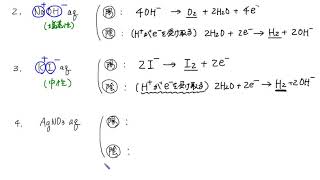 2. NaOH aq
(塩基性)
陽 : 4OH⁻ → O₂ + 2H₂O + 4e⁻
陰 : (H⁺がe⁻を受け取る) 2H₂O + 2e⁻ → H₂ + 2OH⁻
3. KI aq
(中性)
陽 : 2I⁻ → I₂ + 2e⁻
陰 : (H⁺がe⁻を受け取る) 2H₂O + 2e⁻ → H₂ + 2OH⁻
4. AgNO₃ aq
陽 :
陰 :